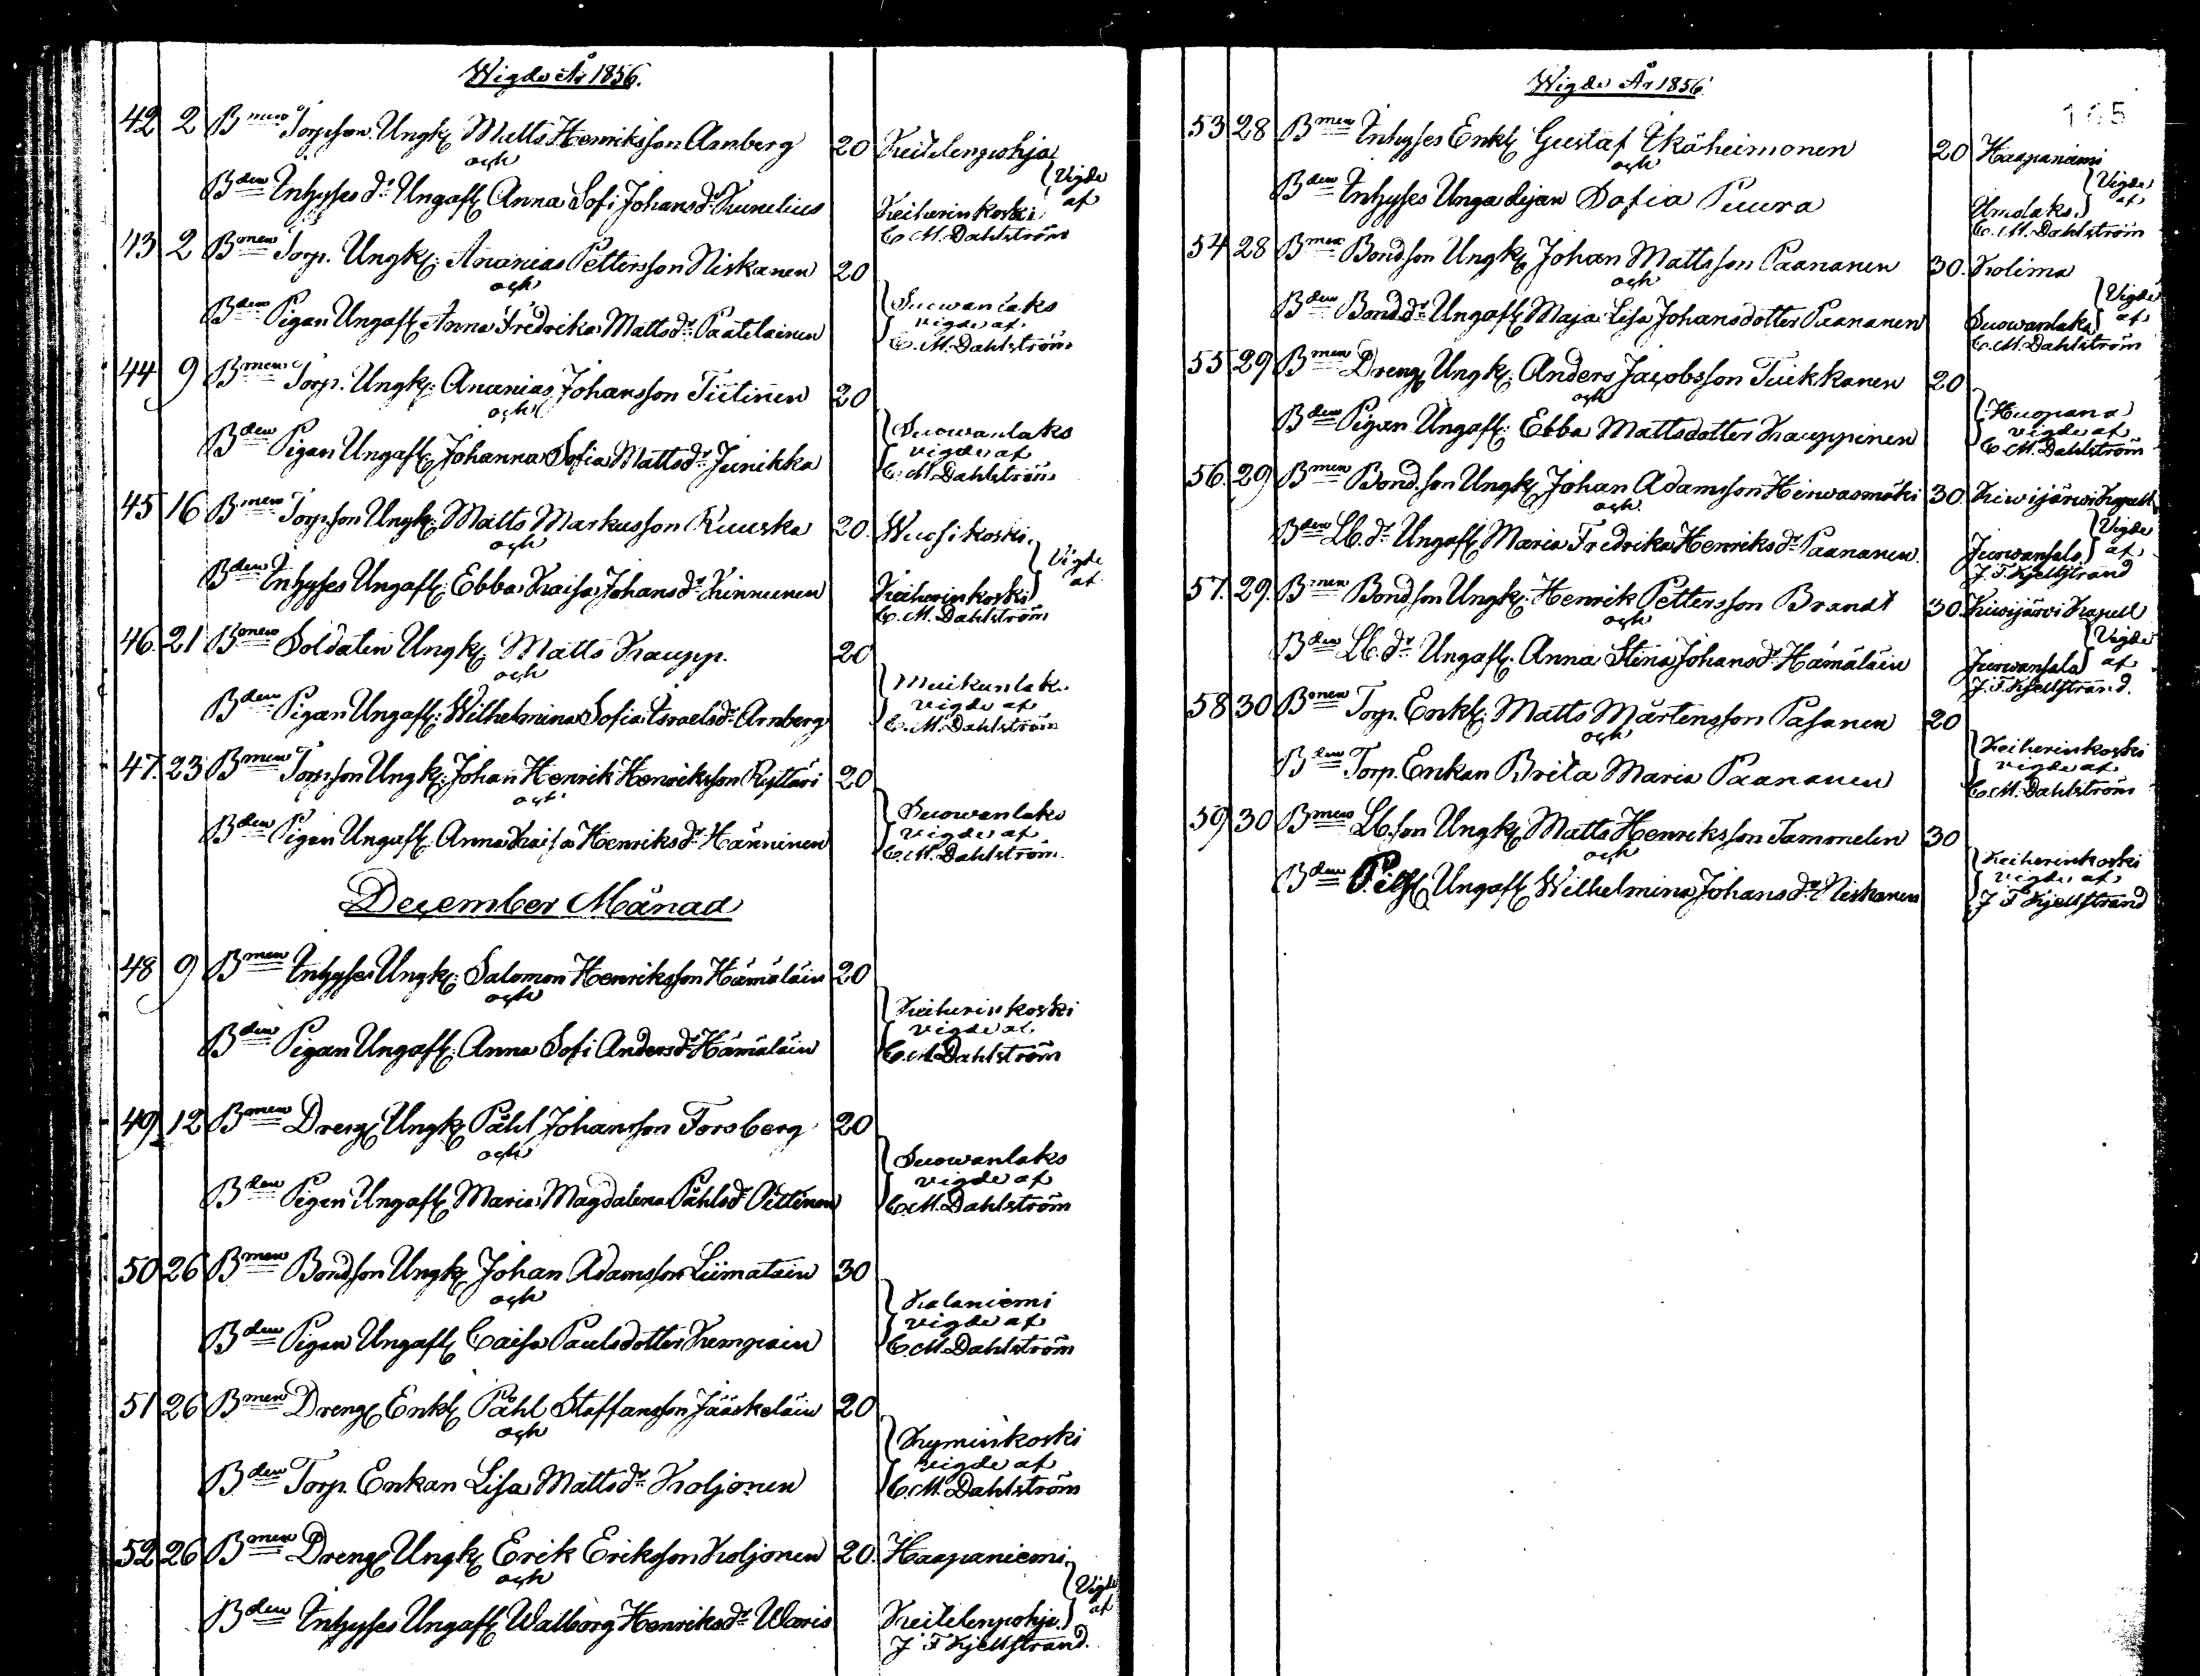 Wigde År 1856.
42 2 Bmen Torpson Ungk: Matts Henriksson Arnberg 20 Keitelenpohja
och
Bden Inhyses dr Ungafl: Anna Sofi Johansdr Kunelius Keiherinkoski } Vigde af
C. M. Dahlström
43 2 Bmen Torp. Ungk: Ananias Pettersson Niskanen 20
och
Bden Pigan Ungafl: Anna Fredrika Mattsdr Paatelainen { Suowanlaks
vigde af
C. M. Dahlström
44 9 Bmen Torp. Ungk: Ananias Johansson Tiitinen 20
och
Bden Pigan Ungafl: Johanna Sofia Mattsdr Junikka { Suowanlaks
vigde af
C. M. Dahlström
45 16 Bmen Torpson Ungk: Matts Markusson Ruuska 20. Wuosikoski.
och
Bden Inhyses Ungafl: Ebba Kaisa Johansdr Kinnunen Keiherinkoski } Vigde af
C. M. Dahlström
46. 21 Bmen Soldaten Ungk: Matts Kaupp. 20
och
Bden Pigan Ungafl: Wilhelmina Sofia Israelsdr Arnberg { Muikunlak.
vigde af
C. M. Dahlström
47. 23 Bmen Torpson Ungk: Johan Henrik Henriksson Ryttäri 20
och
Bden Pigan Ungafl: Anna Kaisa Henriksdr Hänninen { Suowanlaks
vigde af
C. M. Dahlström.
December Månad
48 9 Bmen Inhyses Ungk: Salomon Henriksson Hämäläin 20
och
Bden Pigan Ungafl: Anna Sofi Andersdr Hämäläin { Keiherinkoski
vigde af
C. M. Dahlström
49 12 Bmen Dreng Ungk: Påhl Johansson Forsberg 20
och
Bden Pigan Ungafl: Maria Magdalena Påhlsdr Oittinen { Suowanlaks
vigde af
C. M. Dahlström
50 26 Bmen Bondson Ungk: Johan Adamsson Liimatain 30
och
Bden Pigan Ungafl: Caisa Paulsdotter Kempain { Kalaniemi
vigde af
C. M. Dahlström
51 26 Bmen Dreng Enkl: Påhl Staffansson Jääskeläin 20
och
Bden Torp. Enkan Lisa Mattsdr Koljonen { Kyminkoski
vigde af
C. M. Dahlström
52 26 Bmen Dreng Ungk: Erik Eriksson Koljonen 20. Haapaniemi
och
Bden Inhyses Ungafl: Walborg Henriksdr Waris Keitelenpohja } Vigde af
J. F. Kjellstrand.
Wigde År 1856
165
53 28 Bmen Inhyses Enkl: Gustaf Ikäheimonen 20 Haapaniemi
och
Bden Inhyses Unga Pigan Sofia Puura Umolaks } Vigde af
C. M. Dahlström
54 28 Bmen Bond.son Ungk: Johan Mattsson Paananen 30. Kolima
och
Bden Bond.dr Ungafl: Maja Lisa Johansdotter Paananen Suowanlaks } Vigde af
C. M. Dahlström
55 29 Bmen Dreng Ungk: Anders Jacobsson Tuikkanen 20
och
Bden Pigan Ungafl: Ebba Mattsdotter Kauppinen { Huopana
vigde af
C. M. Dahlström
56. 29 Bmen Bond.son Ungk: Johan Adamsson Hirwasmäki 30 Kiwijärwi Kapell
och
Bden Lb.dr Ungafl: Maria Fredrika Henriksdr Paananen. Jurwansalo } Vigde af
J. F. Kjellstrand
57. 29. Bmen Bondson Ungk: Henrik Pettersson Brandt 30. Kiwijärvi Kapell
och
Bden Lb.dr Ungafl: Anna Stina Johansdr Hämäläin Jurwansala } Vigde af
J. F. Kjellstrand.
58 30 Bmen Torp. Enkl: Matts Mårtensson Pasanen 20
och
Bden Torp. Enkan Brita Maria Paananen { Keiherinkoski
vigde af
C. M. Dahlström
59 30 Bmen Lb.son Ungk: Matts Henriksson Tammelin 30
och
Bden Ungafl: Wilhelmina Johansdr Niskanen { Keiherinkoski
vigde af
J. F. Kjellstrand